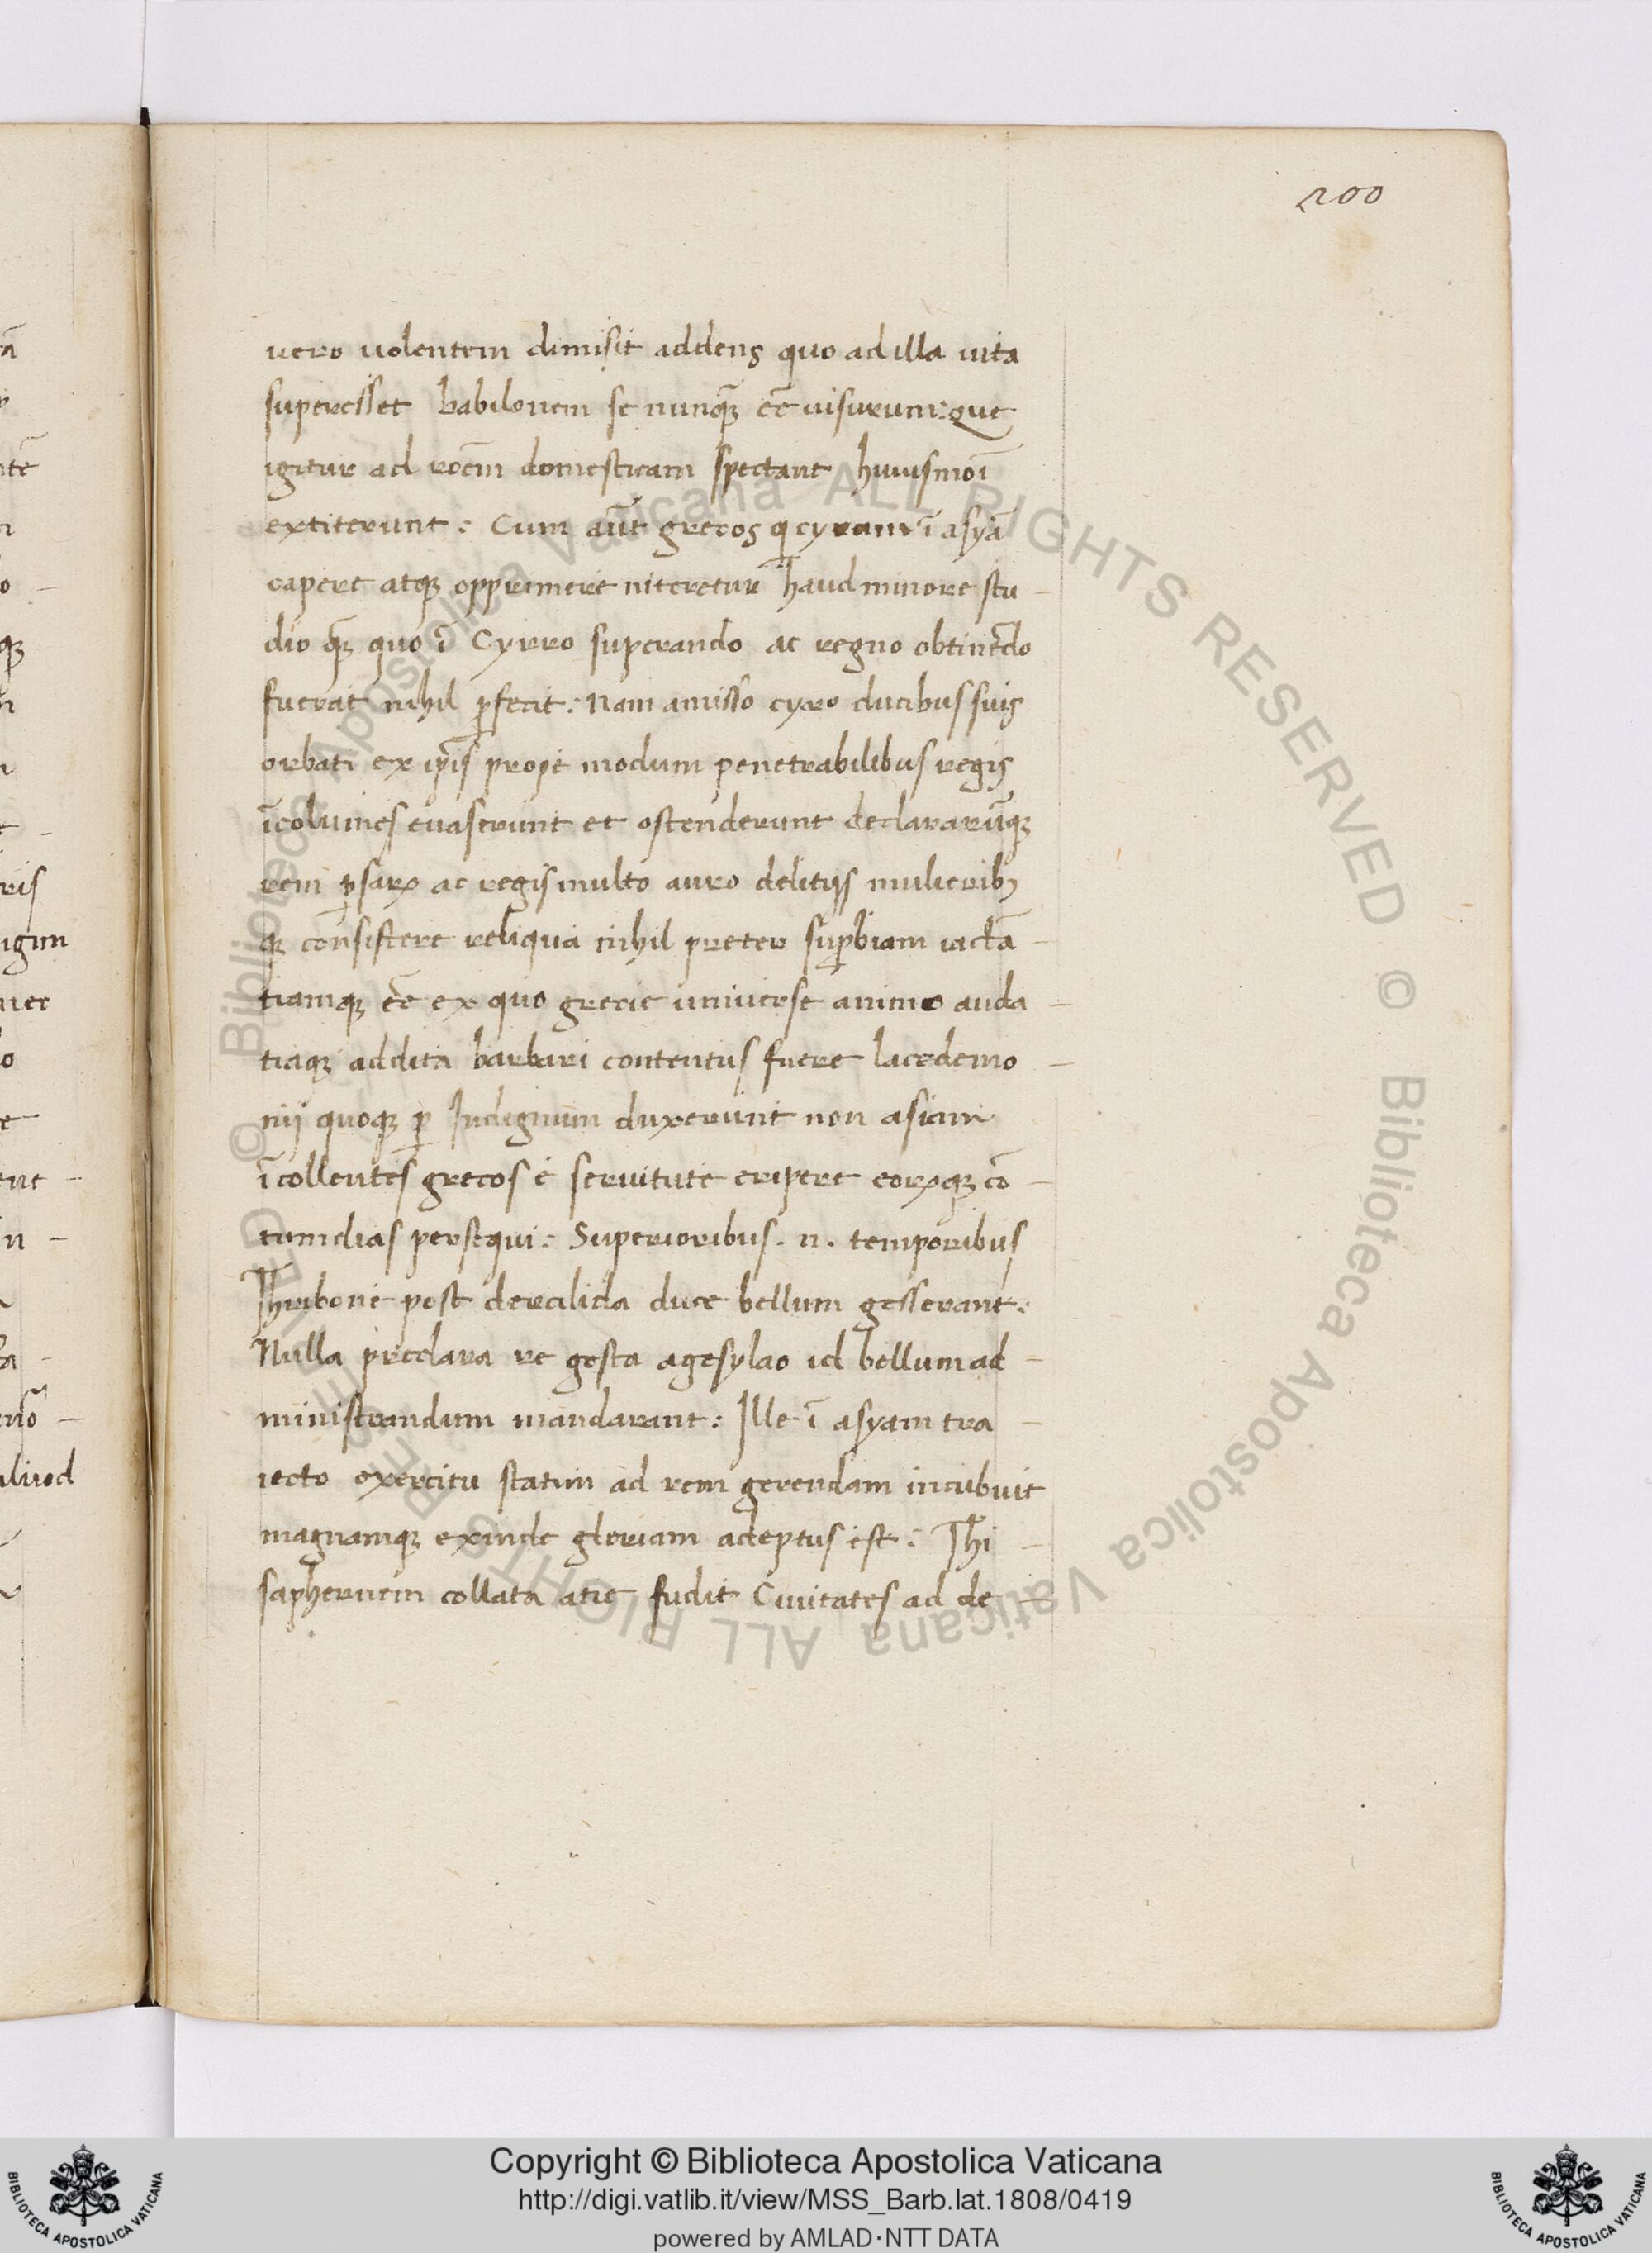 200
uero uolentem dimisit addens quo ad illa uita
superesset babilonem se nunq̃ ee͂ uisurum: Que
igitur ad roe͂m domesticam spectant huiusmoi͂
extiterunt: Cum au͂t grecos q cyrum ĩ asyã
capere atq; opprimere niteretur haud minore stu-
dio q̃ quo ĩ Cyrro superando ac regno obtine͂do
fuerat nihil ꝑfecit: Nam amisso cyro ducibus suis
orbati ex ip̃is prope modum penetrabilibus regis
ĩcolumes euaserunt et ostenderunt declararũtq;
rem ꝑsaꝝ ac regis multo auro delitijs mulierib;
q; consistere reliqua nihil preter suꝑbiam iactã-
tiamq; ee͂ ex quo grecie uniuerse animo auda-
tiaq; addita barbari contentus fuere lacedemo-
nij quoq; ꝑ Indignum duxerunt non asiam
ĩcollentes grecos e seruitute eripere eoꝝq; cõ-
tumelias persequi: Superioribus .n. temporibus
Thribone post dercilida duce bellum gesserant:
Nulla preclara re gesta agesylao id bellum ad-
ministrandum mandarant: Ille ĩ asyam tra-
iecto exercitu statim ad rem gerendam incubuit
magnamq; exinde gloriam adeptus est: Thi-
saphernem collata atie fudit Ciuitates ad de-
Copyright © Biblioteca Apostolica Vaticana
http://digi.vatlib.it/view/MSS_Barb.lat.1808/0419
powered by AMLAD·NTT DATA